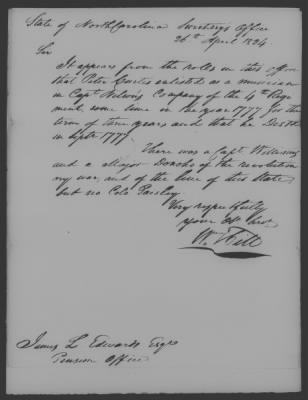 State of North Carolina Secretary's Office
26th April 1824
Sir
It appears from the rolls in this office
that Peter Curtis enlisted as a musician
in Capt Nelsons Company of the 4th Regi
ment some time in the year 1777 for the
term of three years and that he Deserted
in Sept 1777.
There was a Capt Williams
and a Major Donoho of the revolution
ary war, and of the line of this State
but no Colo Paisley
Very respectfully
your Obt Servt
Wm Hill
James L Edwards Esqre
Pension Office